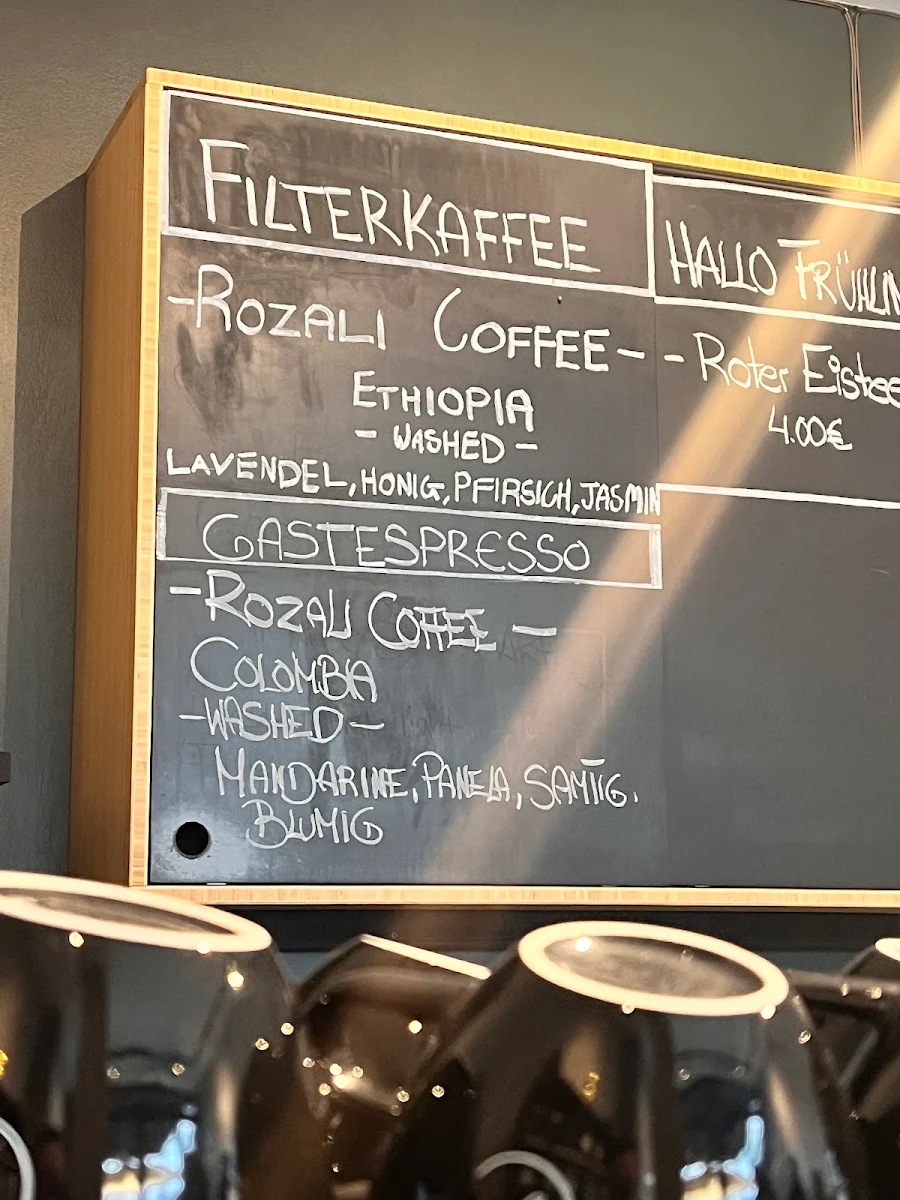 FILTERKAFFEE
-ROZALI COFFEE-
ETHIOPIA
- WASHED -
LAVENDEL, HONIG, PFIRSICH, JASMIN
GASTESPRESSO
-ROZALI COFFEE -
COLOMBIA
-WASHED-
MANDARINE, PANELA, SAMTIG.
BLUMIG
HALLO FRÜHLIN
- Roter Eistee
4.00€